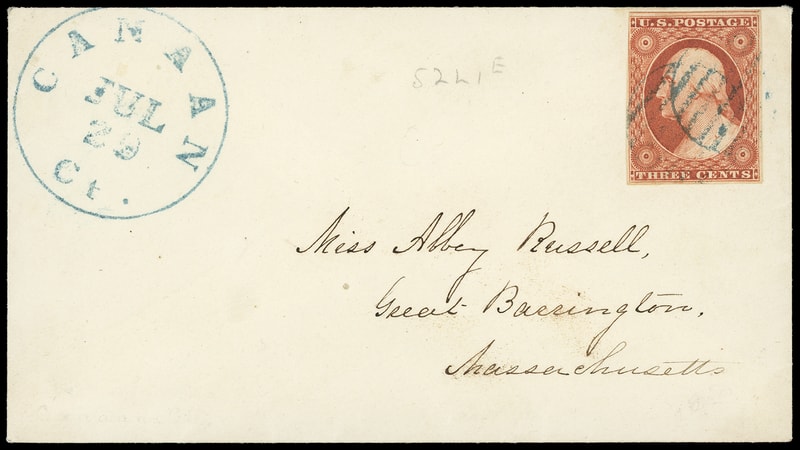 CANAAN
JUL
29
Ct.
S2L1E
U.S. POSTAGE
THREE CENTS
Miss Abbey Russell,
Great Barrington,
Massachusetts